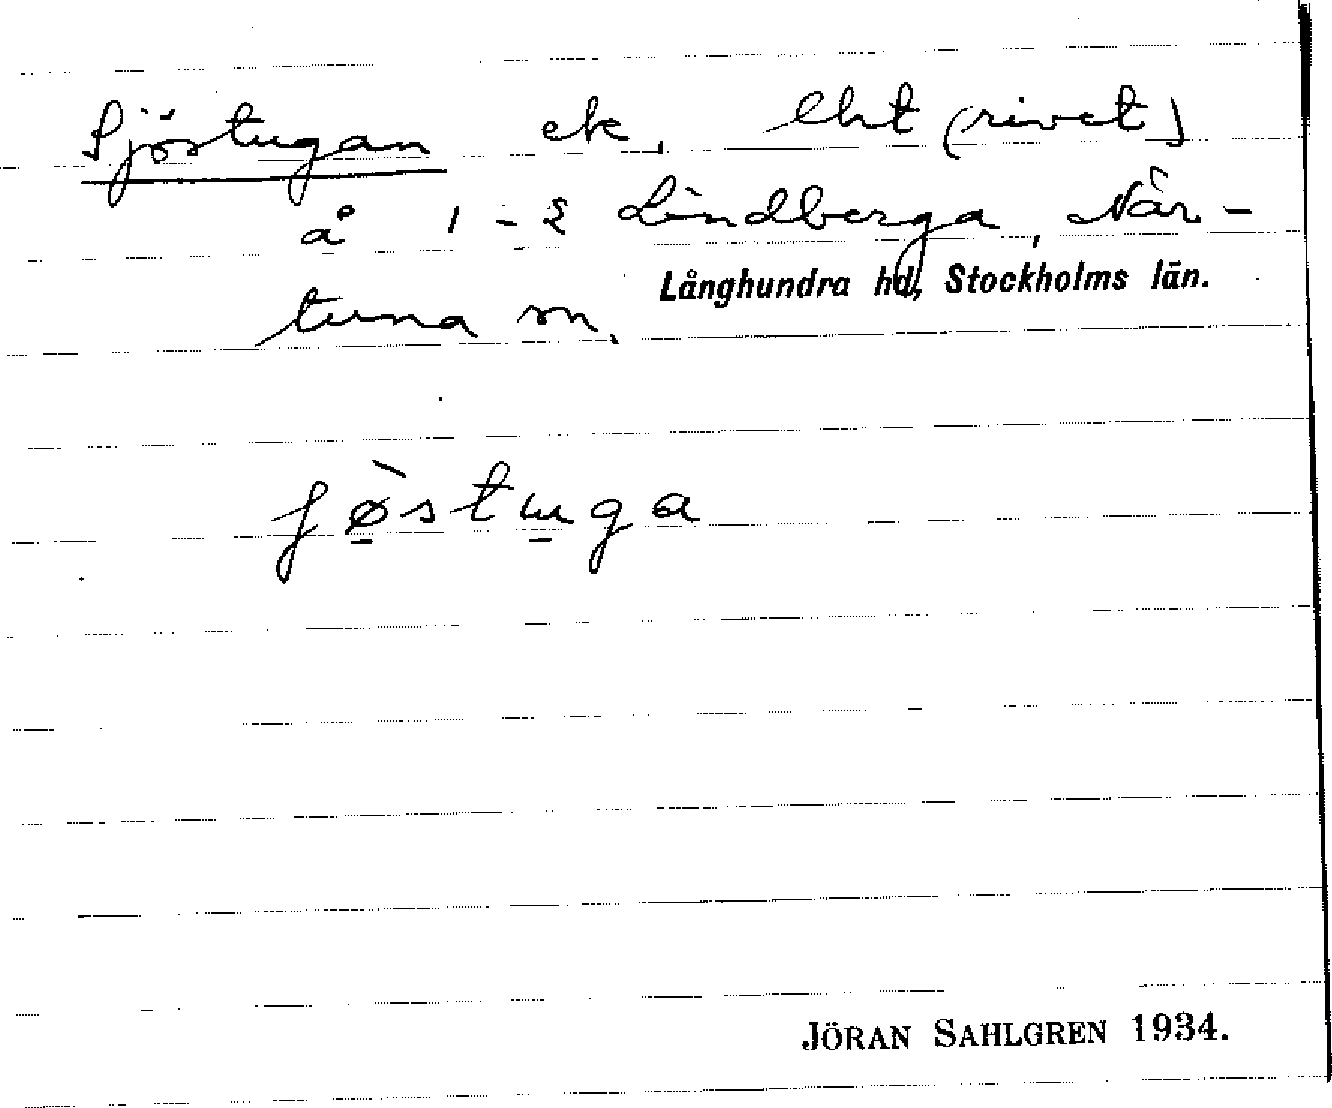 Sjöstugan ek, lht (rivet)
å 1-2 Lindberga, När-
Långhundra hd, Stockholms län.
tuna sn.
ʃø̀stuga
JÖRAN SAHLGREN 1934.